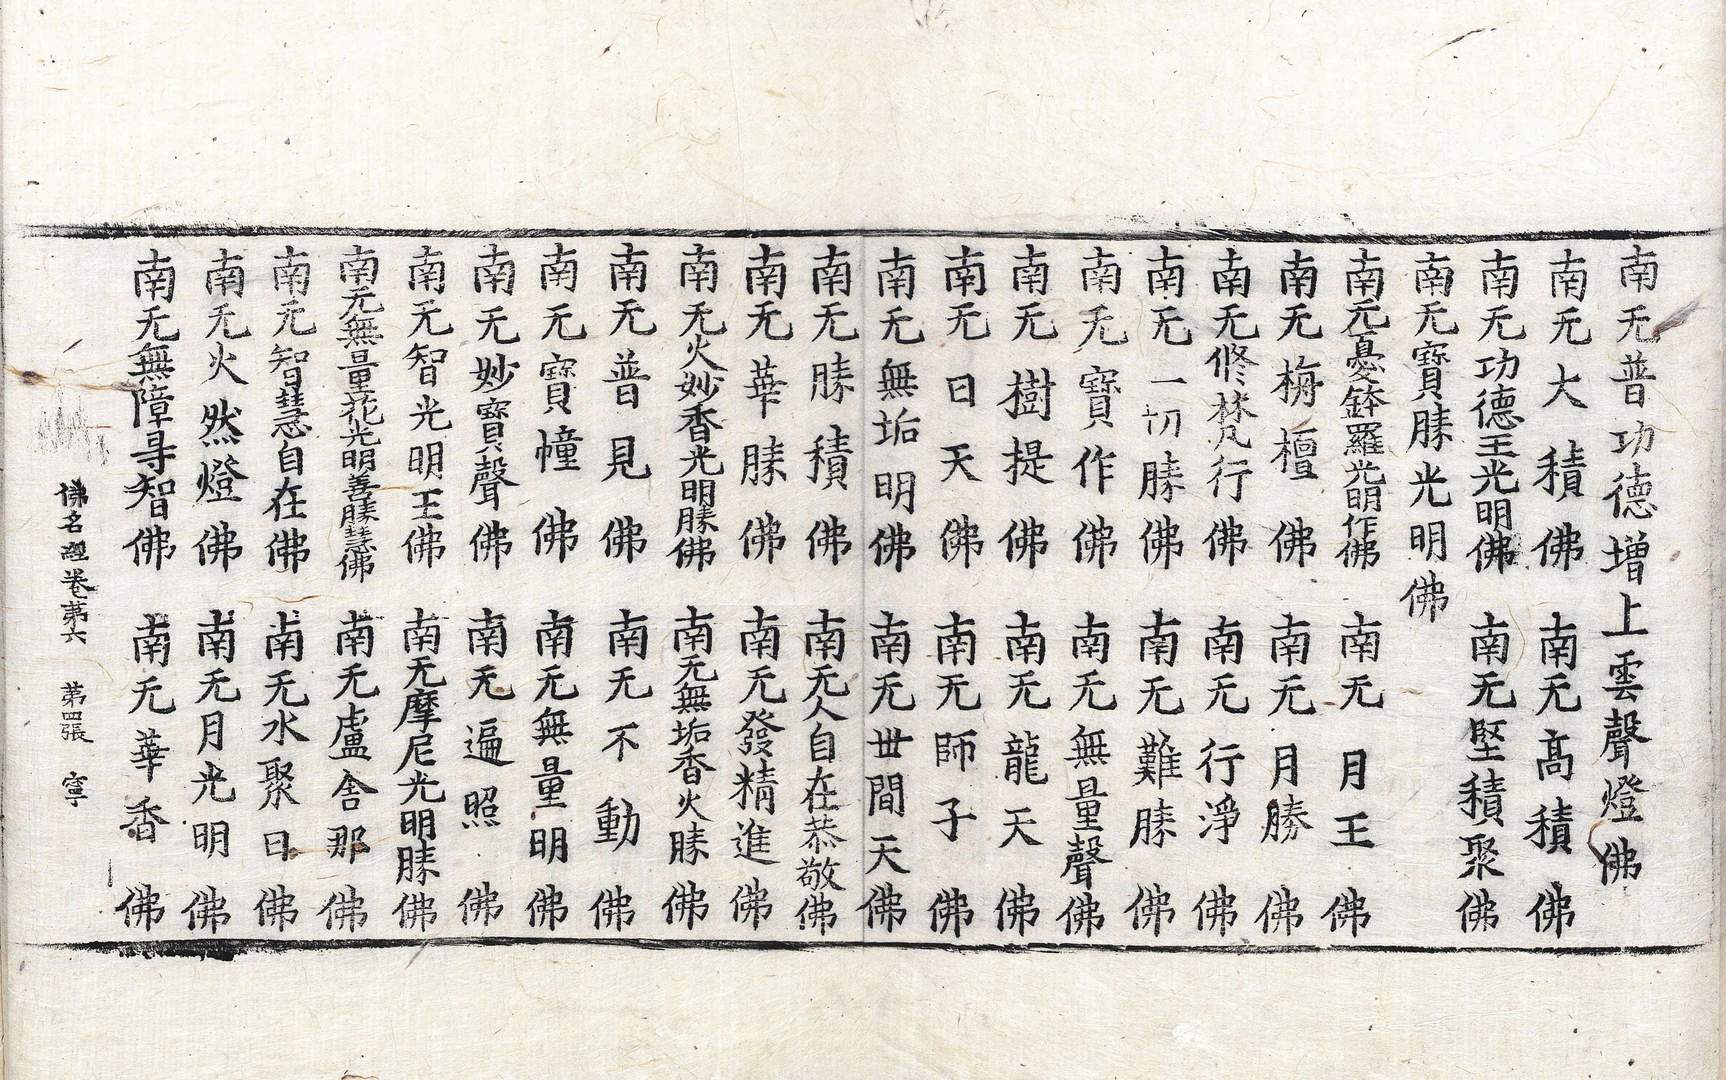 南无普功德增上雲聲燈佛
南无大積佛 南无高積佛
南无功德王光明佛 南无堅積聚佛
南无寶勝光明佛
南无憂鉢羅光明作佛 南无月王佛
南无栴檀佛 南无月勝佛
南无修梵行佛 南无行淨佛
南无一切勝佛 南无難勝佛
南无寶作佛 南无無量聲佛
南无樹提佛 南无龍天佛
南无日天佛 南无師子佛
南无無垢明佛 南无世間天佛
南无勝積佛 南无人自在恭敬佛
南无華勝佛 南无發精進佛
南无火妙香光明勝佛 南无無垢香火勝佛
南无普見佛 南无不動佛
南无寶幢佛 南无無量明佛
南无妙寶聲佛 南无遍照佛
南无智光明王佛 南无摩尼光明勝佛
南无無量花光明善勝慧佛 南无盧舍那佛
南无智慧自在佛 南无水聚日佛
南无火然燈佛 南无月光明佛
南无無障㝵智佛 南无華香佛
佛名經卷第六 第四張 寧